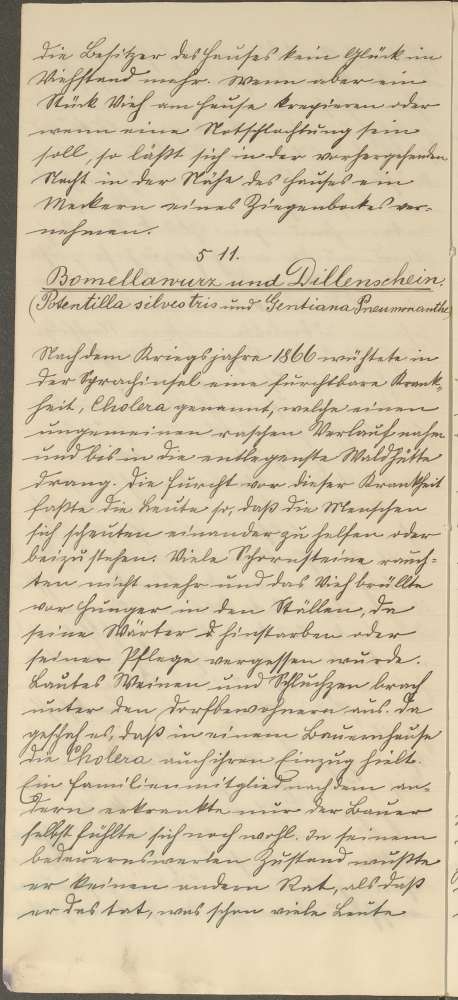 die Besitzer des Hauses kein Glück im
Viehstand mehr. Wenn aber ein
Stück Vieh am Hause krepieren oder
wenn eine Notschlachtung sein
soll, so läßt sich in der vorhergehenden
Nacht in der Nähe des Hauses ein
Meckern eines Ziegenbockes ver-
nehmen.
§ 11.
Bomellawurz und Dillenschein.
(Potentilla silvestris und Gentiana Pneumonanthe)
Nach dem Kriegsjahre 1866 wühtete in
der Sprachinsel eine furchtbare Krank-
heit, Cholera genannt, welche einen
ungemeinen raschen Verlauf nahm
und bis in die entlegenste Waldhütte
drang. Die Furcht vor dieser Krankheit
faßte die Leute so, daß die Menschen
sich scheuten einander zu helfen oder
beizustehen. Viele Schornsteine rauch-
ten nicht mehr und das Vieh brüllte
vor Hunger in den Ställen, da
seine Wärter hinstarben oder
seiner Pflege vergessen wurde.
Lautes Weinen und Schluchzen brach
unter den Dorfbewohnern aus. Da
geschah es, daß in einem Bauernhause
die Cholera auch ihren Einzug hielt.
Ein Familienmitglied nach dem an-
dern erkrankte nur der Bauer
selbst fühlte sich noch wohl. In seinem
bedauernswerten Zustand wußte
er keinen andern Rat, als daß
er das tat, was schon viele Leute